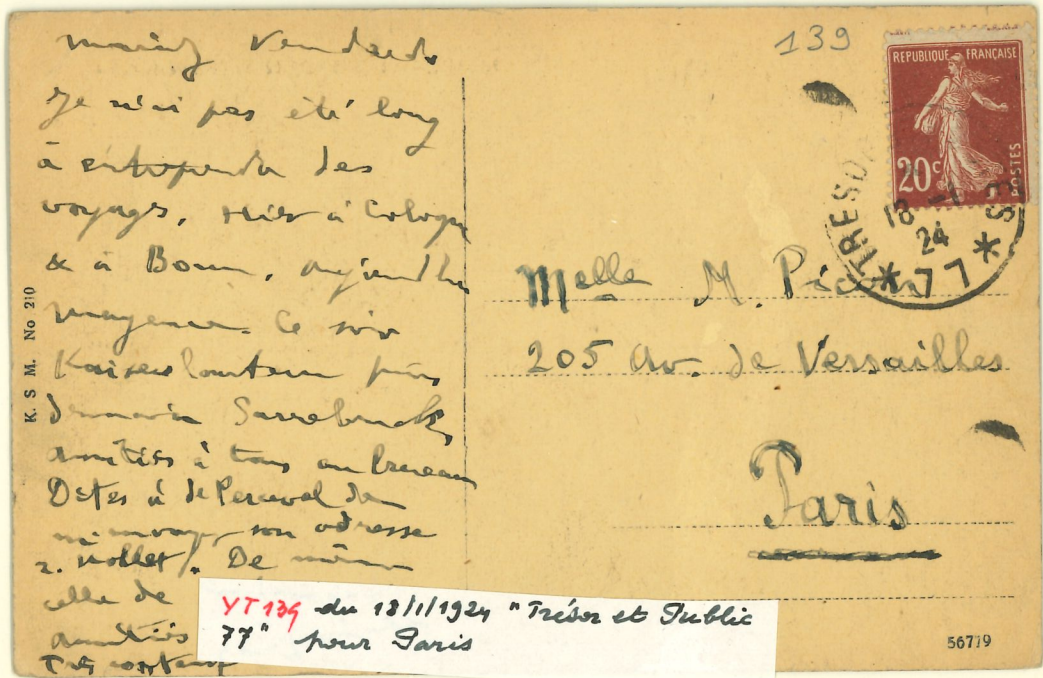 Vendredi
Je n'ai pas été long
à entreprendre des
voyages. Hier à Cologne
& à Bonn, aujourd'hui
Mayence. Ce soir
Kaiserslautern puis
demain Sarrebruck
amitiés à tous au bureau
Dites à de Perceval de
m'envoyer son adresse
r. Nollet. De même
celle de
amitiés
K. S. M. No 210
139
REPUBLIQUE FRANÇAISE
20c
POSTES
TRESOR
18 -1
24
* 77 *
Melle M. Picon
205 Av. de Versailles
Paris
YT139 du 18/1/1924 "Trésor et Public
77" pour Paris
56719